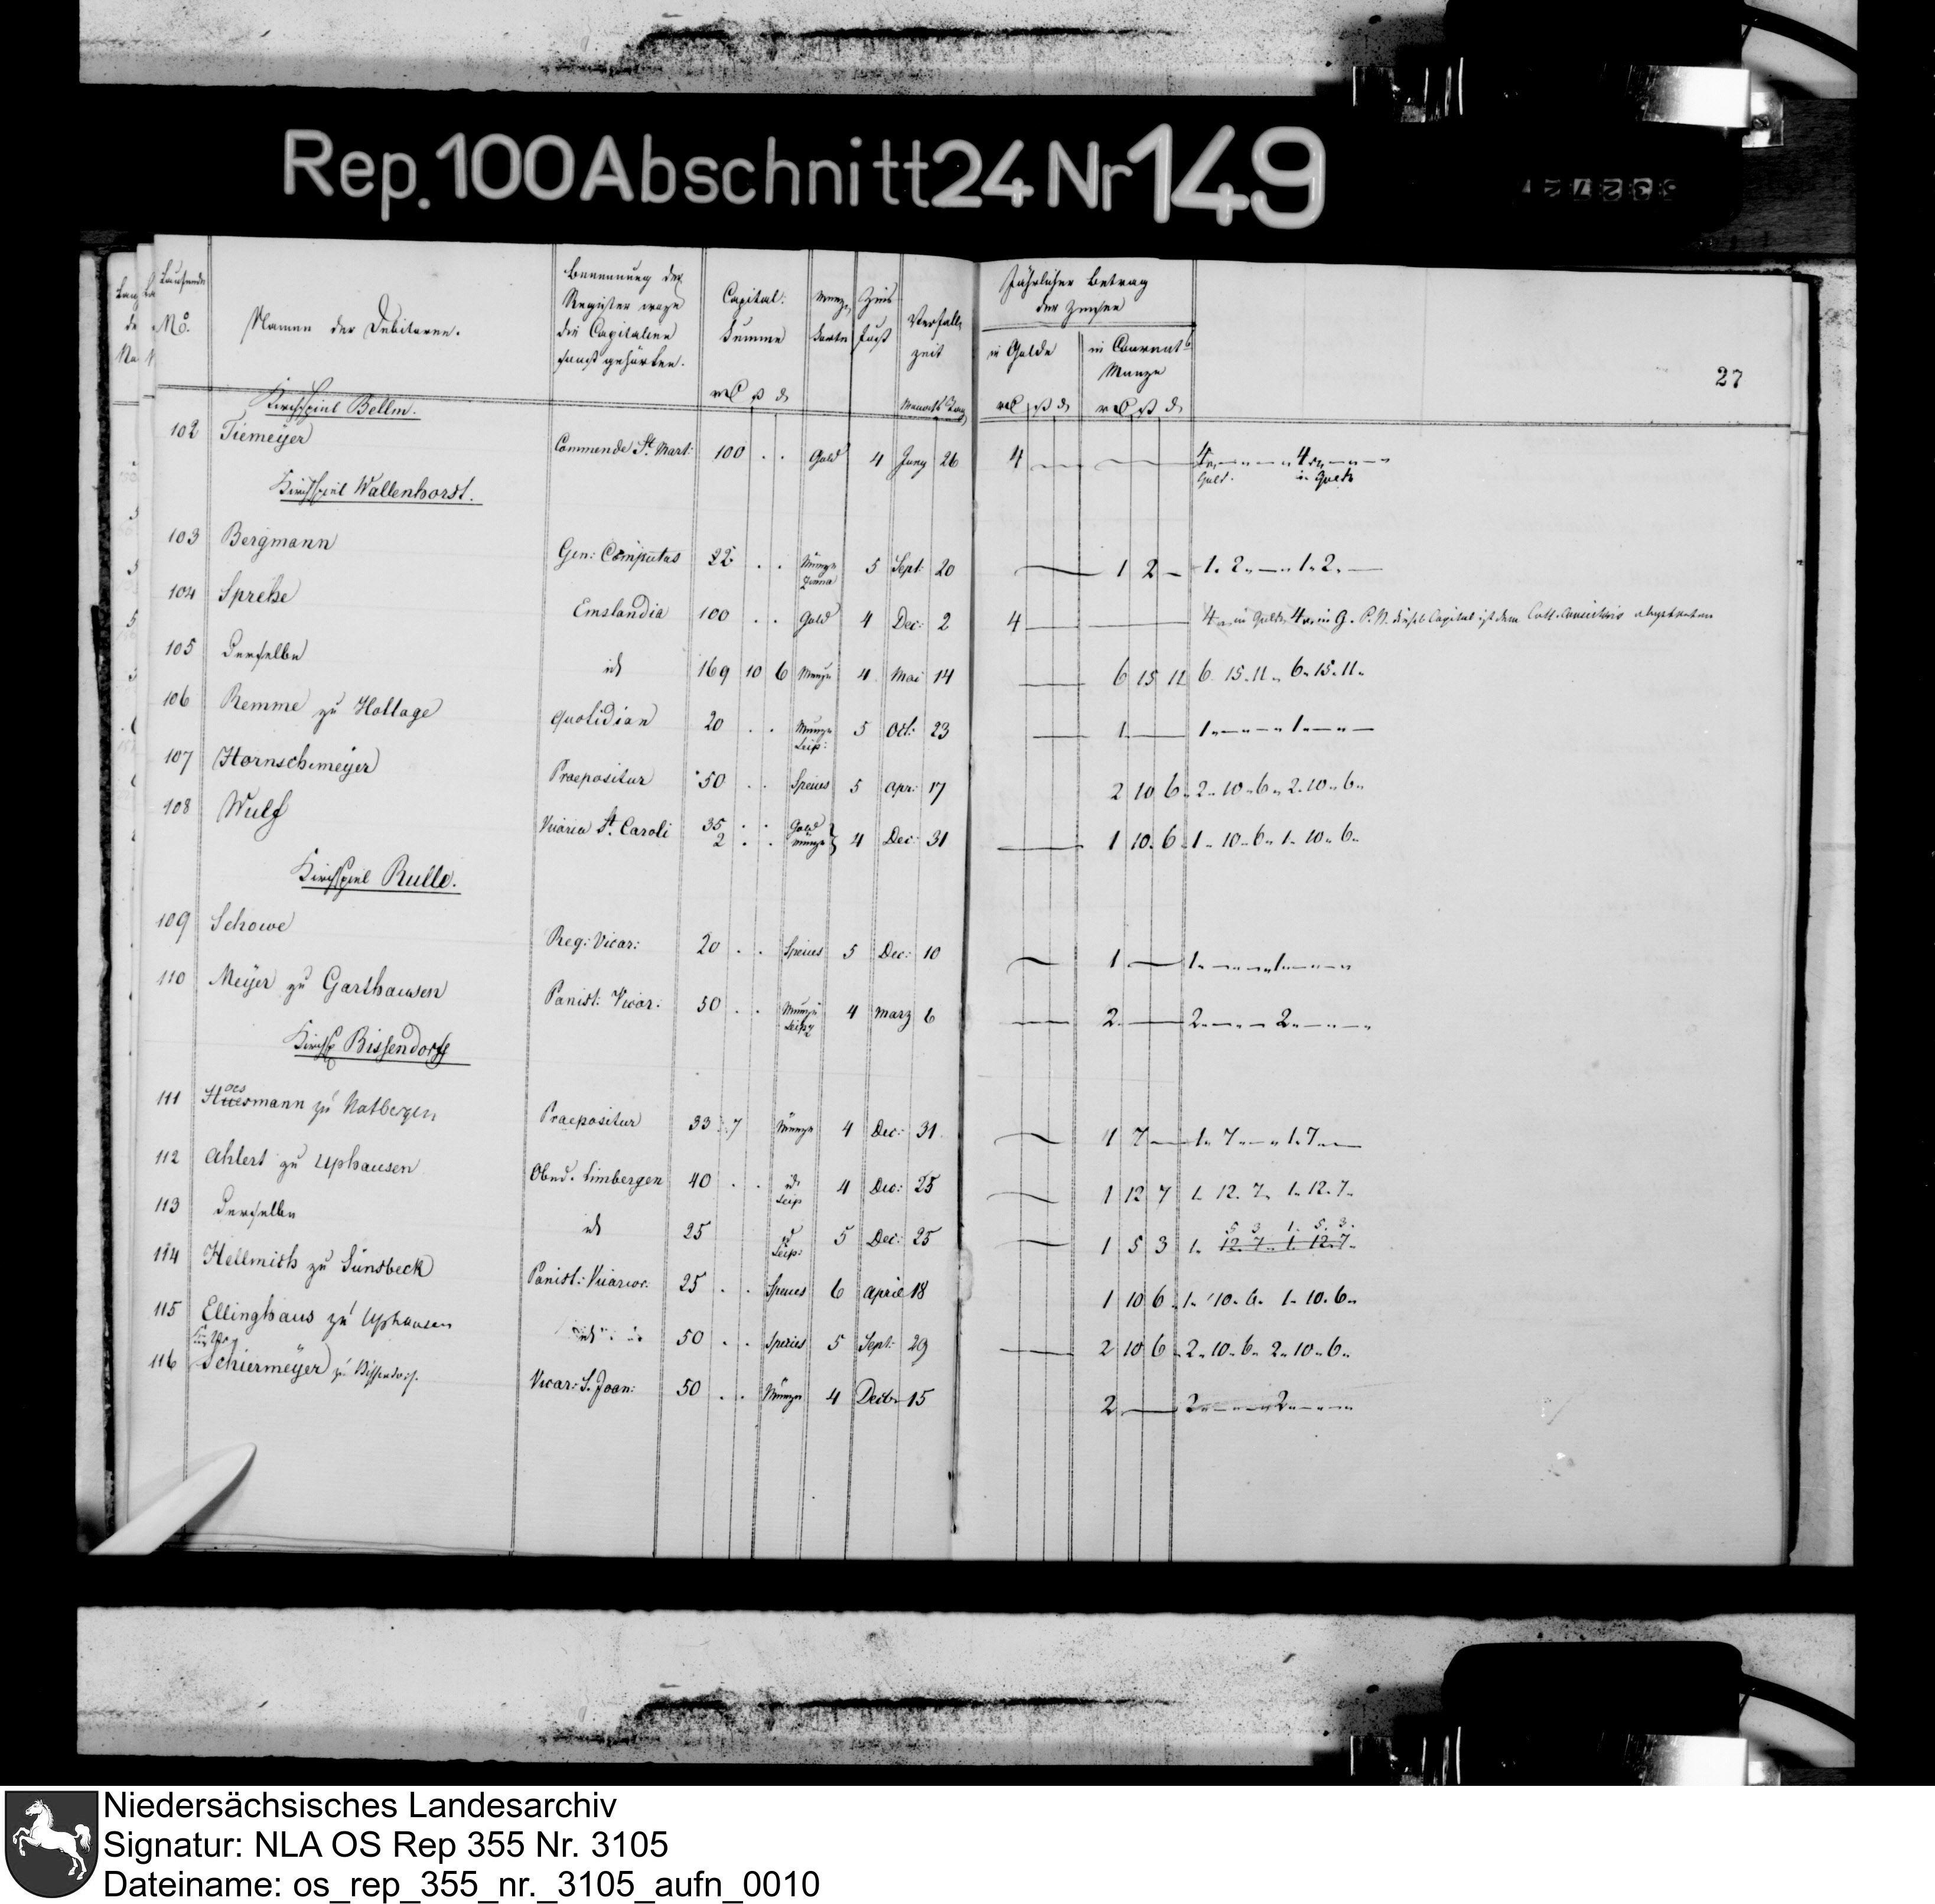 Rep. 100 Abschnitt 24 Nr 149
27
Laufende No. | Namen der Debitoren. | Benennung der Register wozu die Capitalien sonst gehörten. | Capital Summe | Münz-Sorte | Zins Fuß | Verfall zeit Monath Tag | Jährlicher Betrag der Zinsen | in Golde | in Courant Münze
Kirchspiel Bellm.
102 Tiemeyer Commende St. Mart: 100 . . Gold 4 Juny 26 4 — — 4 „ — „ — „ 4 „ — „ — Gold. in Golde
Kirchspiel Wallenhorst.
103 Bergmann Gen: Computus 22 . . Münze 5 Sept: 20 — 1 2 — 1. 2. — „ 1. 2. —
104 Sprehe Emslandia 100 . . Gold 4 Dec: 2 4 — — 4 in Golde 4 in G. P. N. dieses Capital ist dem
105 Derselbe id 169 10 6 Münze 4 Mai 14 — 6 15 11 6. 15. 11. 6. 15. 11.
106 Remme zu Hollage quotidian 20 . . Münze Leip: 5 Oct: 23 — 1 — 1 „ — „ — „ 1 „ — „ —
107 Hornschemeyer Praepositur 50 . . Species 5 Apr: 17 2 10 6 2. 10. 6. 2. 10. 6.
108 Wulf Vicaria St. Caroli 35 . . Gold 2 . . Münze 4 Dec: 31 — 1 10 6 1. 10. 6. 1. 10. 6.
Kirchspiel Rulle.
109 Schowe Reg: Vicar: 20 . . Species 5 Dec: 10 — 1 — 1. — 1. —
110 Meyer zu Garthausen Panist: Vicar: 50 . . Münze Leipz 4 Marz 6 — 2 — 2. — 2. —
Kirchsp Bissendorff
111 Huesmann oes zu Natbergen Praepositur 33 7 Münze 4 Dec: 31 — 1 7 — 1. 7. — 1. 7. —
112 Ahlert zu Uphausen Obed. Limbergen 40 . . id Leip 4 Dec: 25 — 1 12 7 1. 12. 7. 1. 12. 7.
113 Derselbe id 25 id Leip: 5 Dec: 25 — 1 5 3 1. 12. 7. 1. 12. 7. 5. 3. 1. 5. 3.
114 Hellmich zu Sünsbeck Panist: Vicarior: 25 . . Species 6 April 18 1 10 6 1. 10. 6. 1. 10. 6.
115 Ellinghaus zu Uphausen id 50 . . Species 5 Sept: 29 — 2 10 6 2. 10. 6. 2. 10. 6.
116 Schiermeyer zu Bissendorf. Vicar: S. Joan: 50 . . Münze 4 Decbr 15 2 — 2. — 2. —
Niedersächsisches Landesarchiv
Signatur: NLA OS Rep 355 Nr. 3105
Dateiname: os_rep_355_nr._3105_aufn_0010